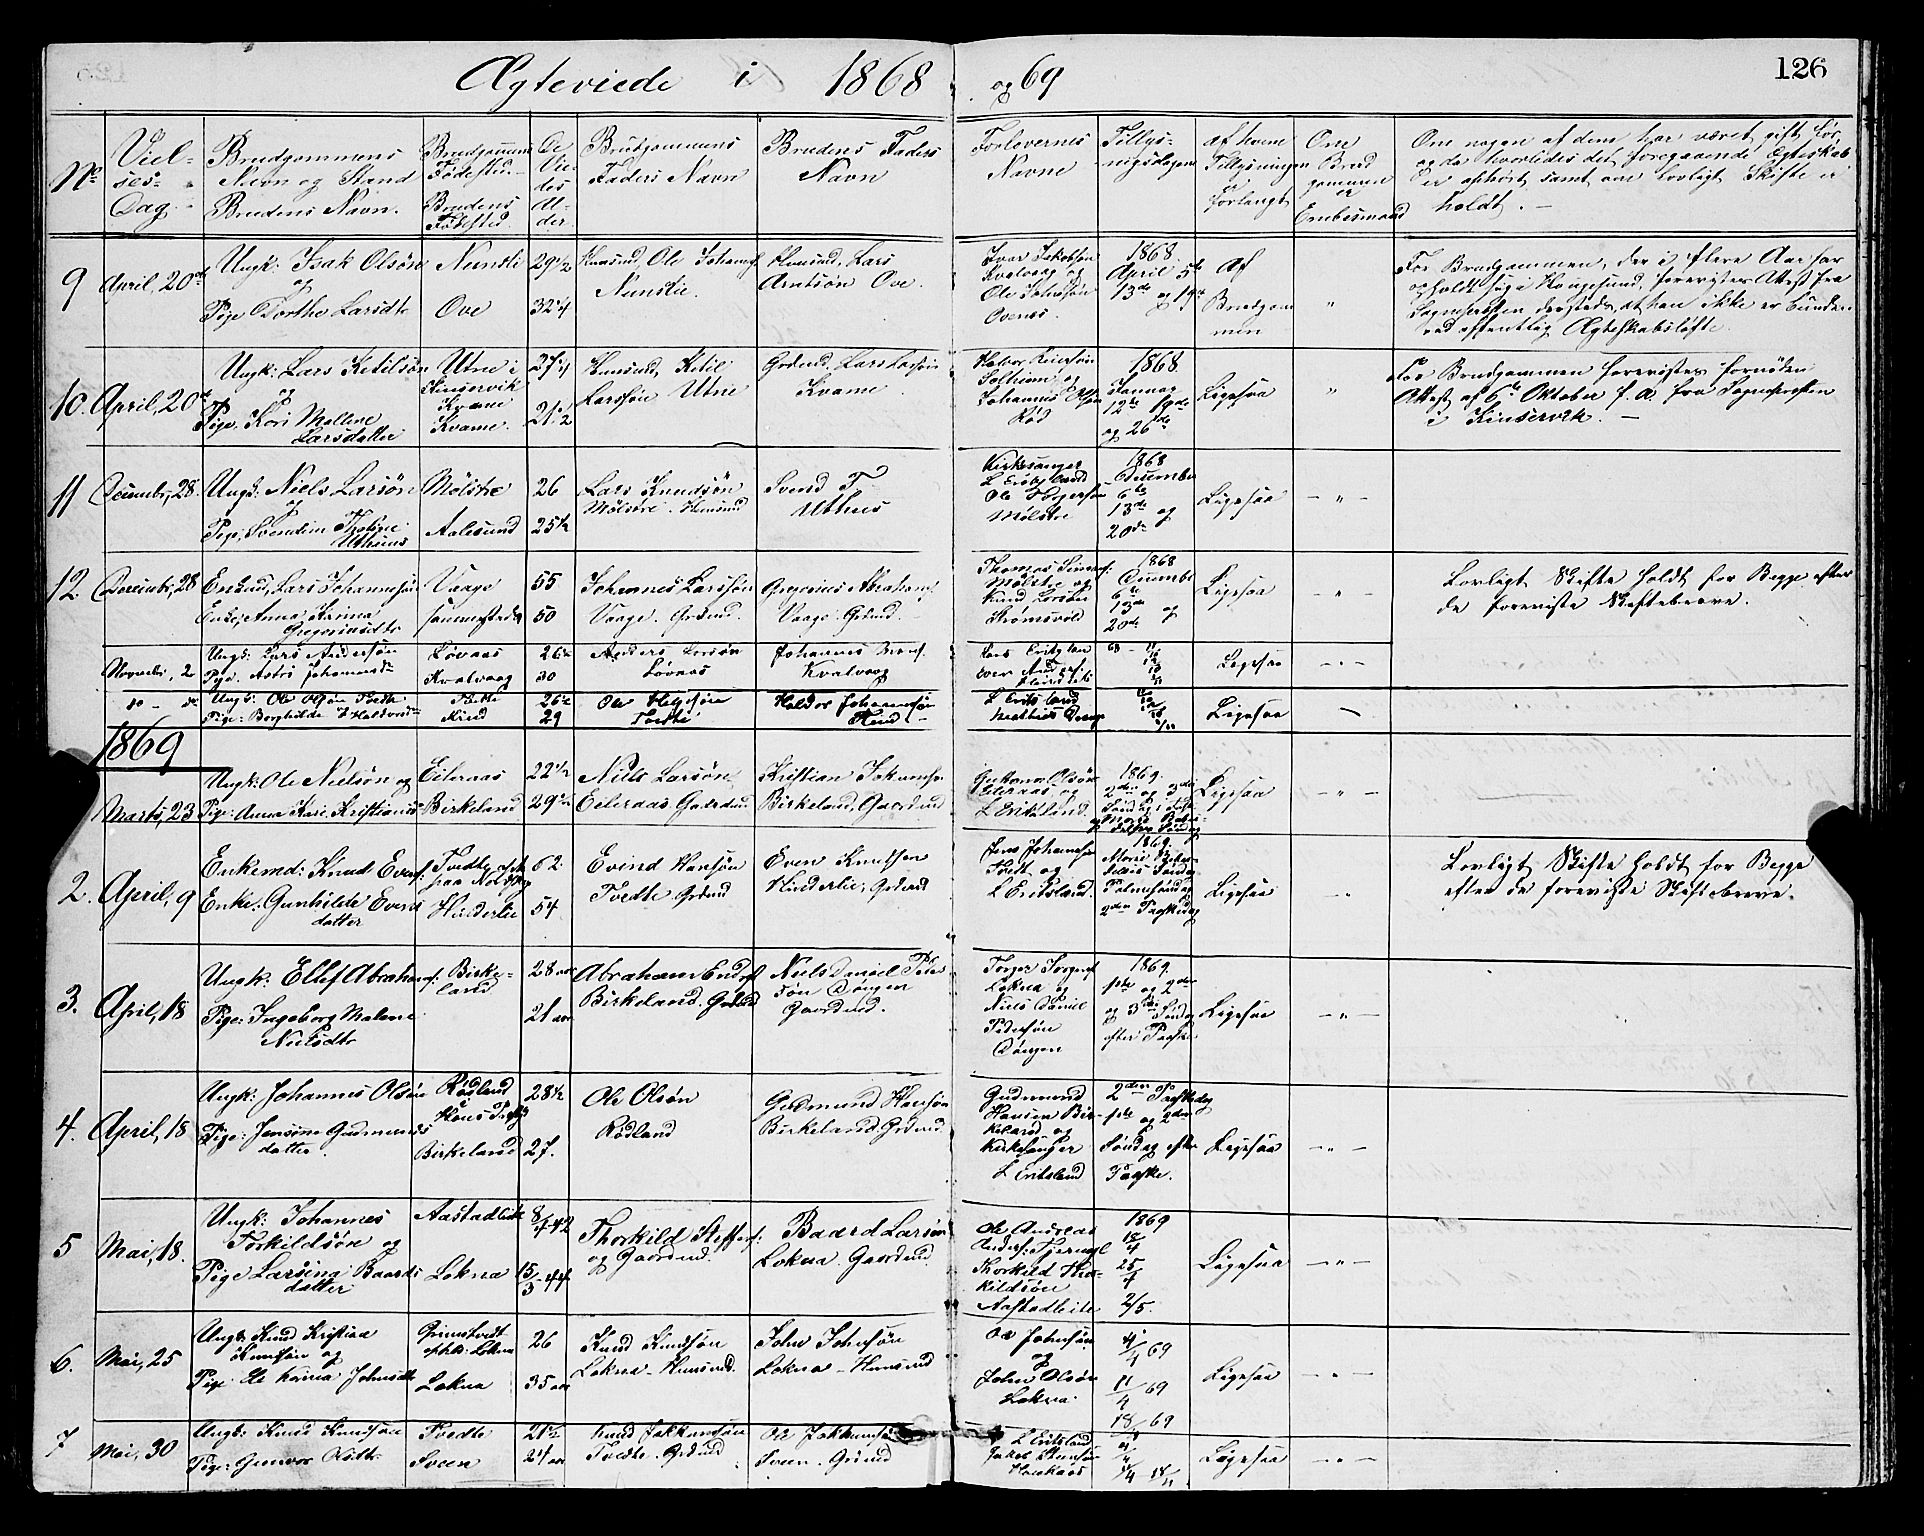 Ægteviede i 1868 og 69
126
No
Viel-
ses-
Dag.
Brudgommens
Navn og Stand
Brudens Navn.
Brudgommens
Fødested
Brudens
Fødested
De
Vie-
des
Al-
der.
Brudgommens
Faders Navn
Brudens Faders
Navn
Forlovernes
Navne
Tillys-
ningsdagene
af hvem
Tillysningen
forlangt
Om
Brud
gommen
er
Embedsmand
Om nogen af dem har været gift før,
og da hvorledes det foregaaende Ægteskab
er ophørt samt om lovligt Skifte er
holdt. —
9 April, 20de
Ungk: Isak Olsøn
og
Pige Dorthe Larsdtr
Nunslie
Ove
29 1/2
32 1/4
Huusmd, Ole Johans
Nunslie.
Huusmd, Lars
Arntsøn Ove.
Ivar Jakobsøn
Kvalvaag og
Ole Johnsøn
Ovenes.
1868.
April 5te
13de og 19de
Af
Brudgom
men
"
For Brudgommen, der i flere Aar har
opholdt sig i Haugesund, forevistes Attest fra
Sognepresten dersteds, at han ikke er bunden
ved offentlig Ægteskabsløfte.
10. April, 20de
Ungk: Lars Ketilsøn
og
Pige, Kari Mallene
Larsdatter
Utne i
Kinservik
Kvame
Kvame.
27 1/4
21 1/2
Huusmd, Ketil
Larssøn Utne
Grdmd, Lars Larsøn
Kvame
Solheim og
Johannes Olsøn
Rød
1868
Januar
12te 19de
og 26de
Ligesaa
"
For Brudgommen forevistes fornøden
Attest af 6te Oktober f. A. fra Sognepresten
i Kinservik. —
11 Decembr, 28.
Ungk: Niels Larsøn
og
Pige, Svendine Thaline
Uthuus
Mølstre
Aalesund
26
25 1/2
Lars Knudsøn
Mølstre. Huusmd
Svend T
Uthuus
Kirkesanger
L Eritsland
Ole Torgersøn
Mølstre
1868
December
6te
13de og
20de
Ligesaa
— " —
12. Decembr, 28
Enkemd, Lars Johannessøn
Enke, Anna Karina
Gregoriusdtr
Vaage
Sammesteds
55
50
Johannes Larssøn
Vaage. Grdmd.
Gregorius Abrahams
Vaage. Grdmd.
Mølstre og
Knud Larsen
Strømsvold
1868
Decembr
6te
13de og
20de
Ligesaa
— " —
Lovligt Skifte holdt for Begge efter
de foreviste Skiftebreve.
Novembr, 2
Ungk: Lars Andersøn
Pige. Astri Johannesdtr
Løvaas
Kvalvaag
26 1/2
30
Anders Larsøn
Løvaas
Johannes
Kvalvaag
Ligesaa
— " —
do — do
Ungk: Ole Olsøn Tvedte
Pige: Borghilde Haldorsdtr
Tvedte
Kind
26 1/2
29
Ole Helgesøn
Tvedte
Haldor Johannesøn
Kind —
L Eritsland
Ligesaa
1869
Marts, 23
Ungk: Ole Nielsøn og
Pige: Anna Kari Kristiansd
Eileraas
Birkeland
22 1/2
29 1/2
Niels Larsøn
Eileraas Gaardmd
Kristian Johannesøn
Birkeland, Gaardmd
Eileraas, og
L Eritsland
1869.
2den og 3die
Ligesaa
— " —
2. April, 9
Enkemd: Knud Evens:
Enke: Gunhilde Evens
datter
Tvedte
Hinderlie
62
54
Evind Hansøn
Tvedte Grdmd
Even Knudsen
Hinderlie, Grdmd
Jens Johannessøn
Tvedt og
L Eritsland.
1869.
Palmesøndag
2den Paaskedag
Ligesaa
"
Lovligt Skifte holdt for Begge
efter de foreviste Skiftebreve.
3. April, 18
Ungk: Ellef Abrahams:
Pige: Ingeborg Malene
Nielsdtr
Birke-
land
28 aar
21 aar
Abraham Ends
Birkeland. Grdmd
Niels Daniel Peder-
søn Dongen
Gaardmd.
Lokna og
Niels Daniel
Pedersøn
Dongen
1869
1ste og 2den
og 3die Søndag
efter Paaske
Ligesaa
— " —
4. April, 18
Ungk: Johannes Olsøn
Pige: Jensine Gudmunds
datter.
Rødland
Birkeland
28 1/2
27.
Ole Olsøn
Rødland
Gudmund Hansøn
Birkeland. Grdmd.
Gudmund
Hansen Bir-
keland og
Kirkesanger
L Eritsland
2den Paaskedag
1ste og 2den
Søndag efter
Paaske.
Ligesaa
— " —
5 Mai, 18.
Ungk: Johannes
Torkildsøn og
Pige Larsina Baards
datter
Aastadleite
Lokna
8/7-42
15/3-44
Thorkild Steffens:
og Gaardmd.
Baard Larsøn
Lokna. Gaardmd.
Ole Andreas
Anders: Tjernagl
Thorkild Thor-
kildsøn
Aastadleite
1869
18/4
25/4
2/5.
Ligesaa
— " —
6. Mai, 25
Ungk: Knud Kristian
Knudsøn og
Pige. Ele Karina Johnsdtr
Grimstvedt
opholdt: Lokna
Lokna
26
35 aar
Knud Knudsøn
Lokna — Huusmd.
John Johnsøn
Lokna — Huusmd
Ole Johnsøn
og
John Olsøn
Lokna.
4/4 69
11/4 69
18/4 69
Ligesaa
— " —
7 Mai, 30
Ungk: Knud Knudsøn
Pige: Gunvor Olsdtr
Tvedte
Sveen
21 1/2
24 aar
Knud Jokkumsøn
Tvedte. Grdmd
Ole Jokkumsøn
Sveen. Grdmd
L Eritsland
Ligesaa
— " —